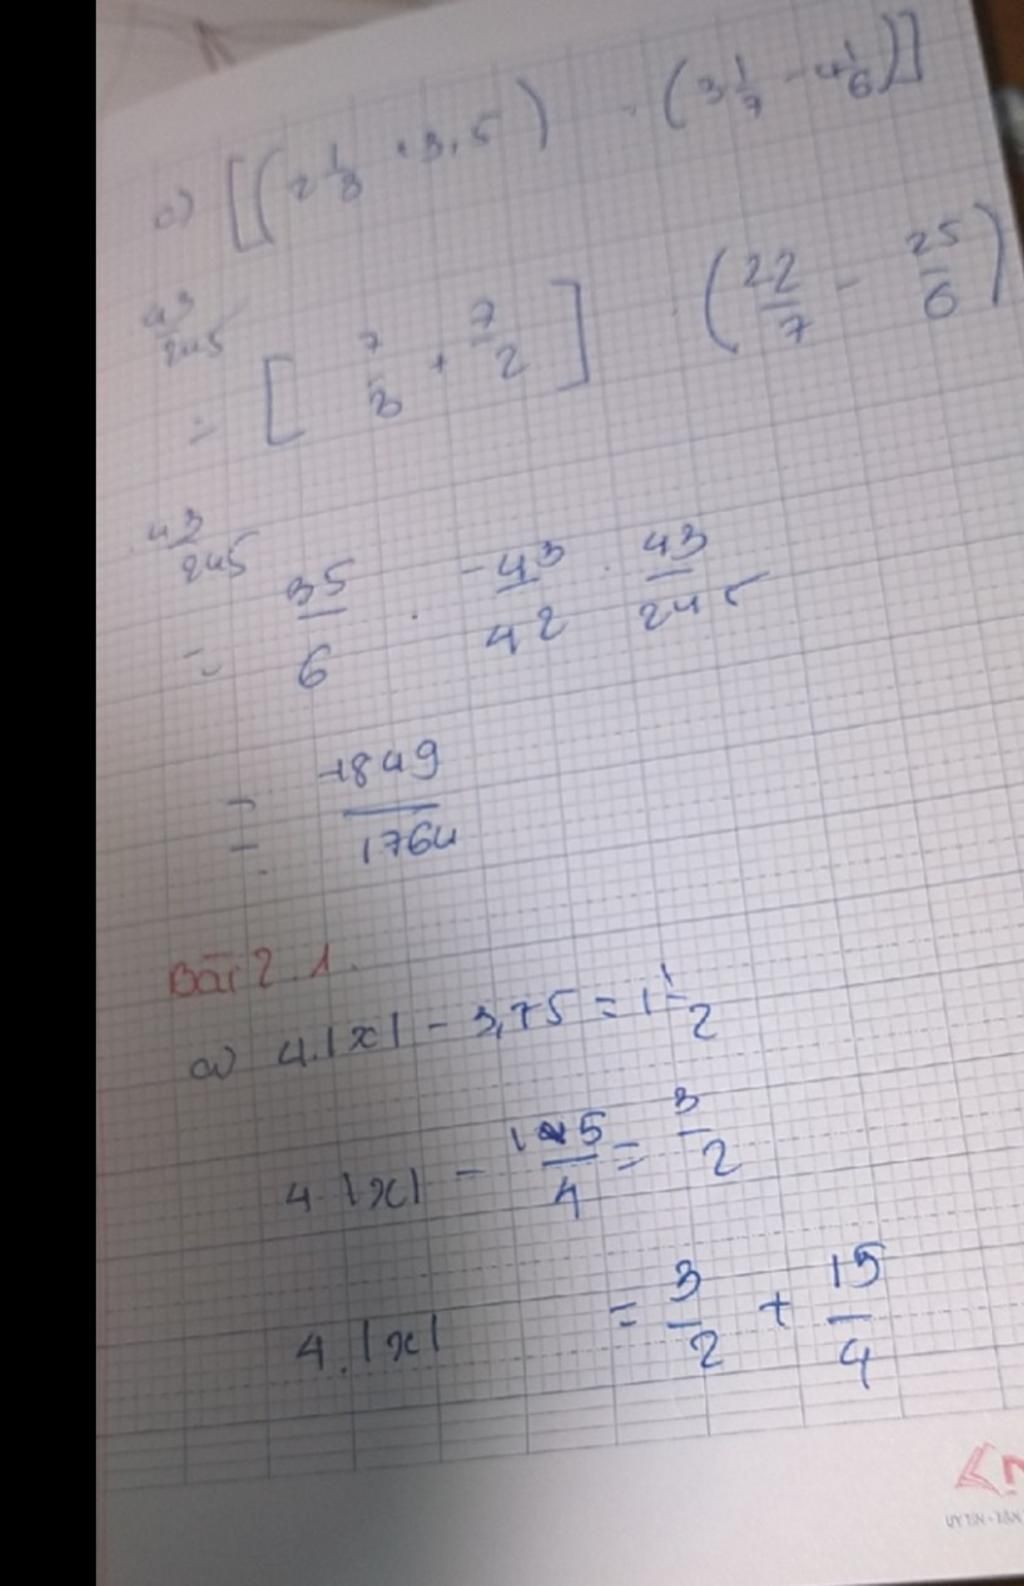 c) [(2 1/3 + 3,5) . (3 1/7 - 4 1/6)]
43/245
= [7/3 + 7/2] . (22/7 - 25/6)
43/245
= 35/6 . -43/42 . 43/245
= -1849/1764
Bài 2.1.
a) 4.|x| - 3,75 = 1 1/2
4.|x| - 15/4 = 3/2
4.|x| = 3/2 + 15/4